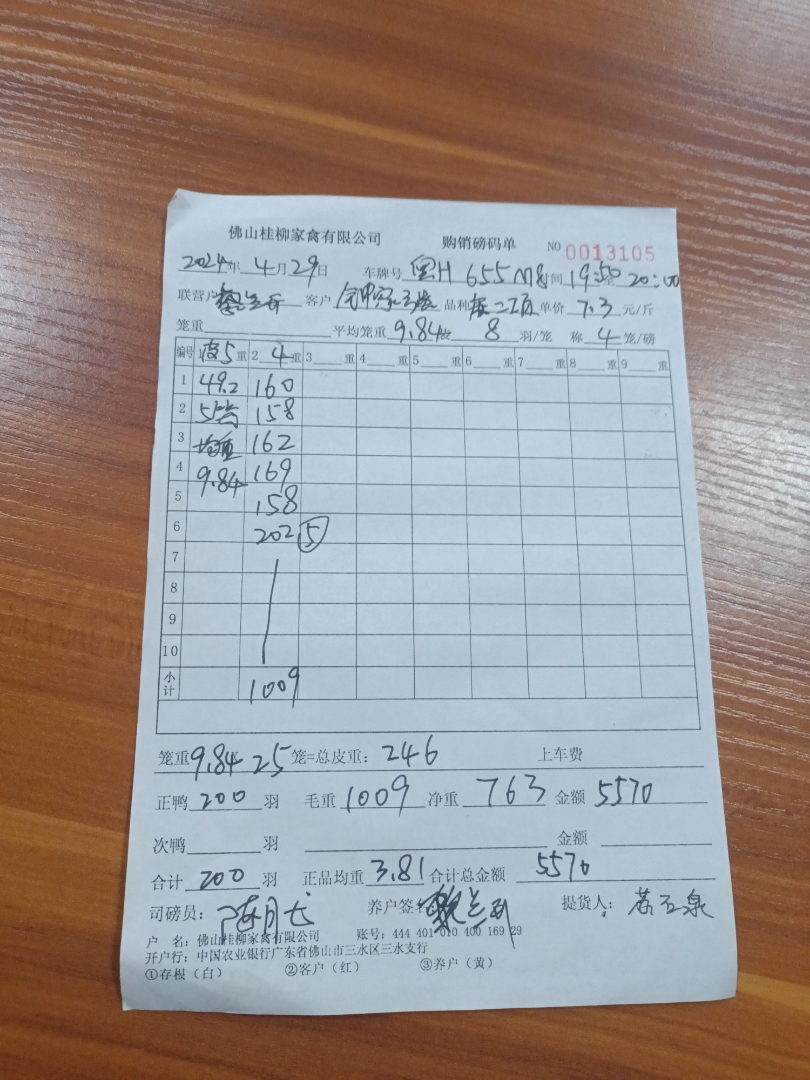 佛山桂柳家禽有限公司 购销磅码单 NO 0013105
2024年 4月29日 车牌号 655M8 时间 19:50 至 20:00
联营户 客户 品种 单价 7.3 元/斤
笼重 平均笼重 9.84 8 羽/笼 称 4 笼/磅
编号 1皮5重 2 4重 3 重 4 重 5 重 6 重 7 重 8 重 9 重
1 49.2 160
2 5 158
3 均重 162
4 9.84 169
5 158
6 202 5
7
8
9
10
小计 1009
笼重9.84 25笼=总皮重：246 上车费
正鸭 200 羽 毛重 1009 净重 763 金额 5570
次鸭 羽 金额
合计 200 羽 正品均重 3.81 合计总金额 5570
司磅员： 养户签名 提货人：
户 名：佛山桂柳家禽有限公司 账号：444 401 010 400 169 29
开户行：中国农业银行广东省佛山市三水区三水支行
①存根（白） ②客户（红） ③养户（黄）